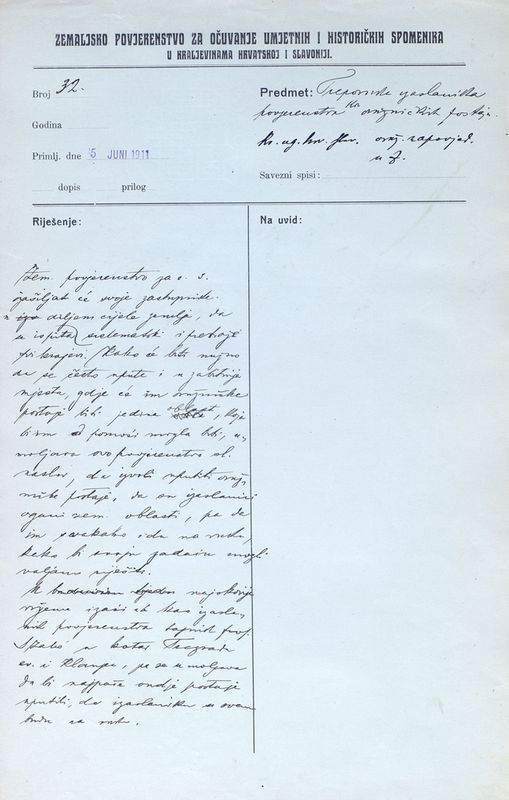 ZEMALJSKO POVJERENSTVO ZA OČUVANJE UMJETNIH I HISTORIČKIH SPOMENIKA
U KRALJEVINAMA HRVATSKOJ I SLAVONIJI.
Broj 32.
Godina
Primlj. dne 5 JUNI 1911
dopis prilog
Predmet: Preporuka izaslanika
povjerenstva kr. oružničkih postaja.
Kr. ug. hrv. slav. oruž. zapovjed.
u Z.
Savezni spisi:
Riješenje:
Na uvid:
Zem. povjerenstvo za o. s.
će svoje zastupnike
u cijele zemlje, da
se sistematski
krajevi. Kako će biti nužno
da se često upute i u zabitnija
mjesta, gdje će im oružničke
postaje biti jedina oblast, koja
bi im pomoći mogla biti,
ovo povjerenstvo
naslov, da izvoli uputiti oruž
ničke postaje, da su izaslanici
organi zem. oblasti, pa da
im svakako idu na ruku,
kako bi svoju zadaću mogli
valjano riješiti.
U najskorije
vrijeme će kao izasla
nik povjerenstva prof.
u kotar
ev. i Klanjec, pa se umoljava
da bi ondje postaje
uputiti, da izaslaniku u ovom
budu na ruku.